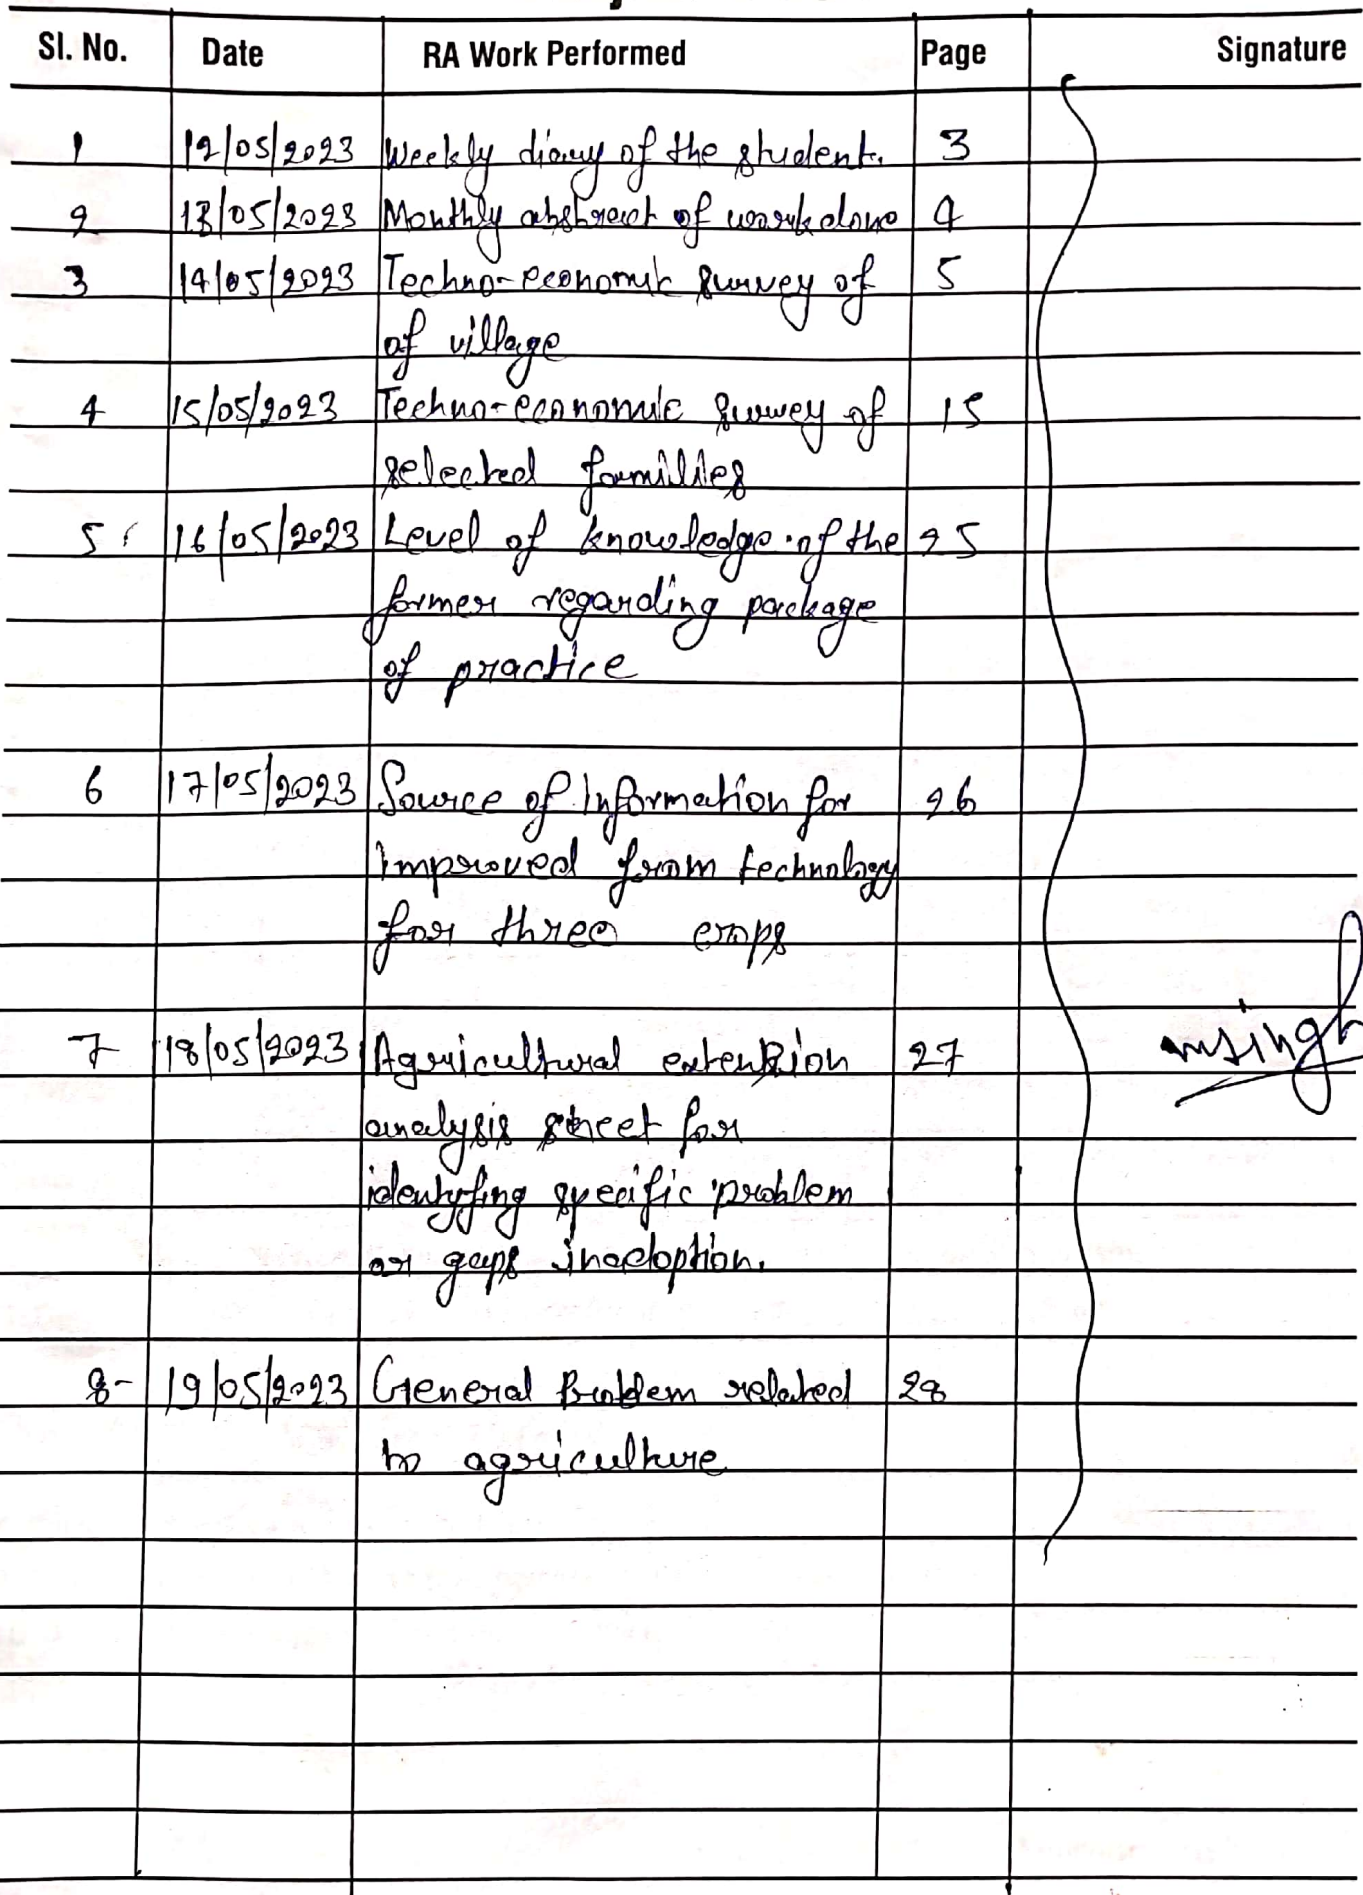 Sl. No. Date RA Work Performed Page Signature
1 12/05/2023 Weekly diary of the student. 3
2 13/05/2023 Monthly abstract of work done 4
3 14/05/2023 Techno-economic survey of 5
of village
4 15/05/2023 Techno-economic survey of 15
selected families
5 16/05/2023 Level of knowledge of the 25
farmer regarding package
of practice
6 17/05/2023 Source of Information for 26
Improved from technology
for three crops
7 18/05/2023 Agricultural extension 27
analysis sheet for
identyfing specific problem
or gaps inadoption.
8- 19/05/2023 General Problem related 28
to agriculture
msingh